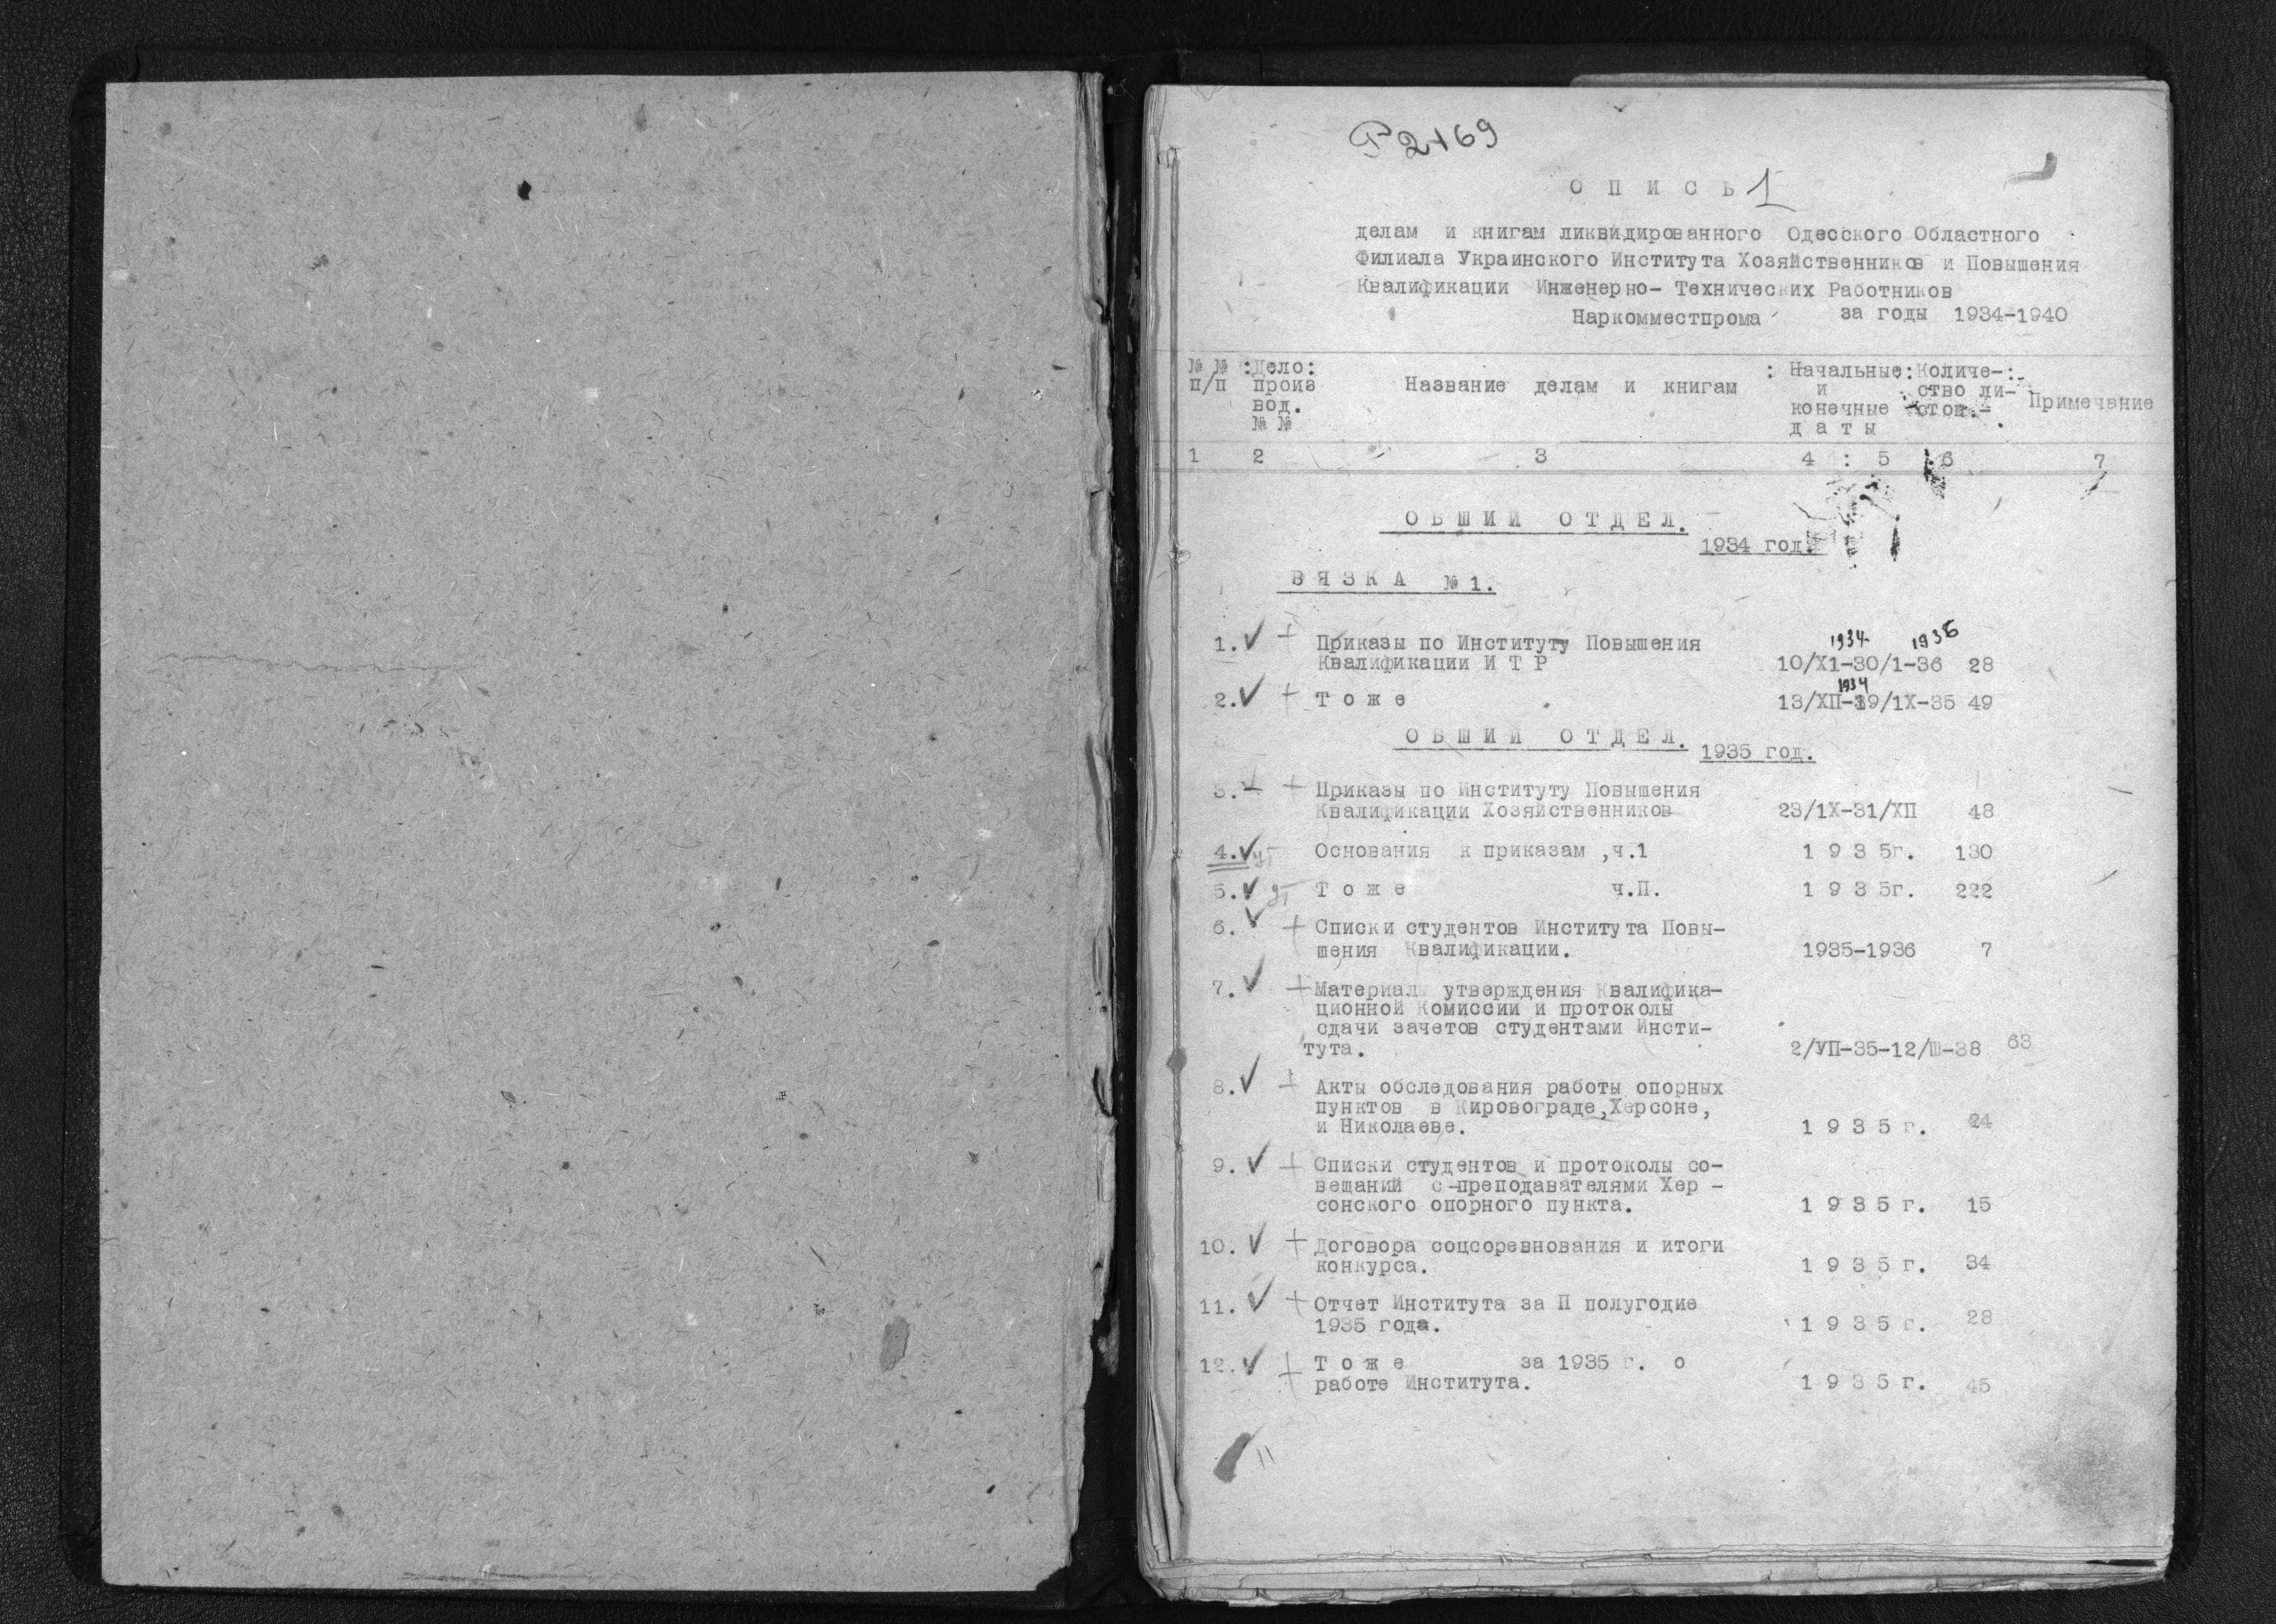 Р 2169
О П И С Ь 1
делам и книгам ликвидированного Одесского Областного
Филиала Украинского Института Хозяйственников и Повышения
Квалификации Инженерно- Технических Работников
Наркомместпрома за годы 1934-1940
№ № :Дело: : Начальные:Количе-:
п/п произ Название делам и книгам и ство ли- Примечание
вод. конечные стов.-
№ № д а т ы
1 2 3 4 : 5 :6 7
О Б Щ И Й О Т Д Е Л.
1934 год.
В Я З К А № 1.
1934 1936
1. V + Приказы по Институту Повышения
Квалификации И Т Р 10/Х1-30/1-36 28
1934
2. V + Т о ж е 13/ХП-19/1Х-35 49
О Б Щ И Й О Т Д Е Л.
1935 год.
3. + + Приказы по Институту Повышения
Квалификации Хозяйственников 23/1Х-31/ХП 48
4. V ут Основания к приказам ,ч.1 1 9 3 5г. 130
5. V ут Т о ж е ч.П. 1 9 3 5г. 222
6. V + Списки студентов Института Повы-
шения Квалификации. 1935-1936 7
7. V + Материал утверждения Квалифика-
ционной Комиссии и протоколы
сдачи зачетов студентами Инсти-
тута. 2/УП-35-12/Ш-38 63
8. V + Акты обследования работы опорных
пунктов в Кировограде,Херсоне,
и Николаеве. 1 9 3 5 г. 24
9. V + Списки студентов и протоколы со-
вещаний с-преподавателями Хер -
сонского опорного пункта. 1 9 3 5 г. 15
10. V + Договора соцсоревнования и итоги
конкурса. 1 9 3 5 г. 34
11. V + Отчет Института за П полугодие
1935 года. 1 9 3 5 г. 28
12. V + Т о ж е за 1935 г. о
работе Института. 1 9 3 5 г. 45